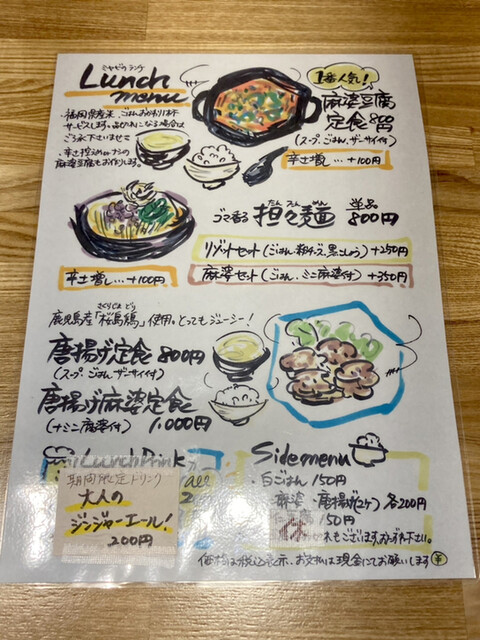 ミヤビのランチ
Lunch
menu
・福岡県産米、ごはんおかわり1杯
サービスします。品切れになる場合は
ご了承下さいませ
・辛さ控えめ
麻婆豆腐もお作りします。
1番人気!
麻婆豆腐
定食 800円
(スープ、ごはん、ザーサイ付)
辛さ増し…+100円
ゴマ香る 担々麺 単品
たん たん めん
800円
リゾットセット(ごはん、粉チーズ、黒こしょう)+250円
麻婆セット(ごはん、ミニ麻婆付)+350円
辛さ増し…+100円
さくらじまどり
鹿児島産「桜島鶏」使用。とってもジューシー!
唐揚げ定食 800円
(スープ、ごはん、ザーサイ付)
唐揚げ麻婆定食
(+ミニ麻婆付) 1,000円
Lunch Drink
all
期間限定ドリンク
大人の
ジンジャーエール!
200円
Side menu
・白ごはん 150円
・麻婆・唐揚げ(2ケ)各200円
150円
もございます。お声がけ下さい。
価格は税込表示、お支払は現金にてお願いします ¥